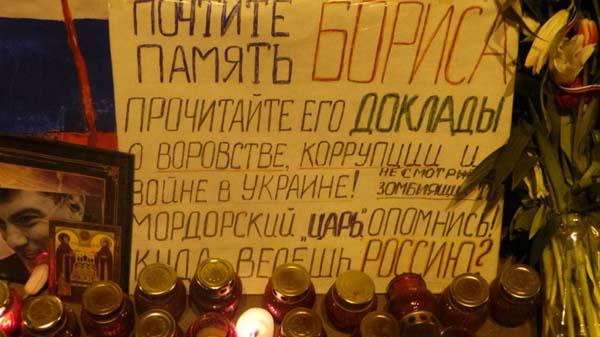 ПОЧТИТЕ
ПАМЯТЬ БОРИСА
ПРОЧИТАЙТЕ ЕГО ДОКЛАДЫ
О ВОРОВСТВЕ, КОРРУПЦИИ И
ВОЙНЕ В УКРАИНЕ! НЕ СМОТРИ
МОРДОРСКИЙ „ЦАРЬ", ОПОМНИСЬ!
КУДА ВЕДЁШЬ РОССИЮ?